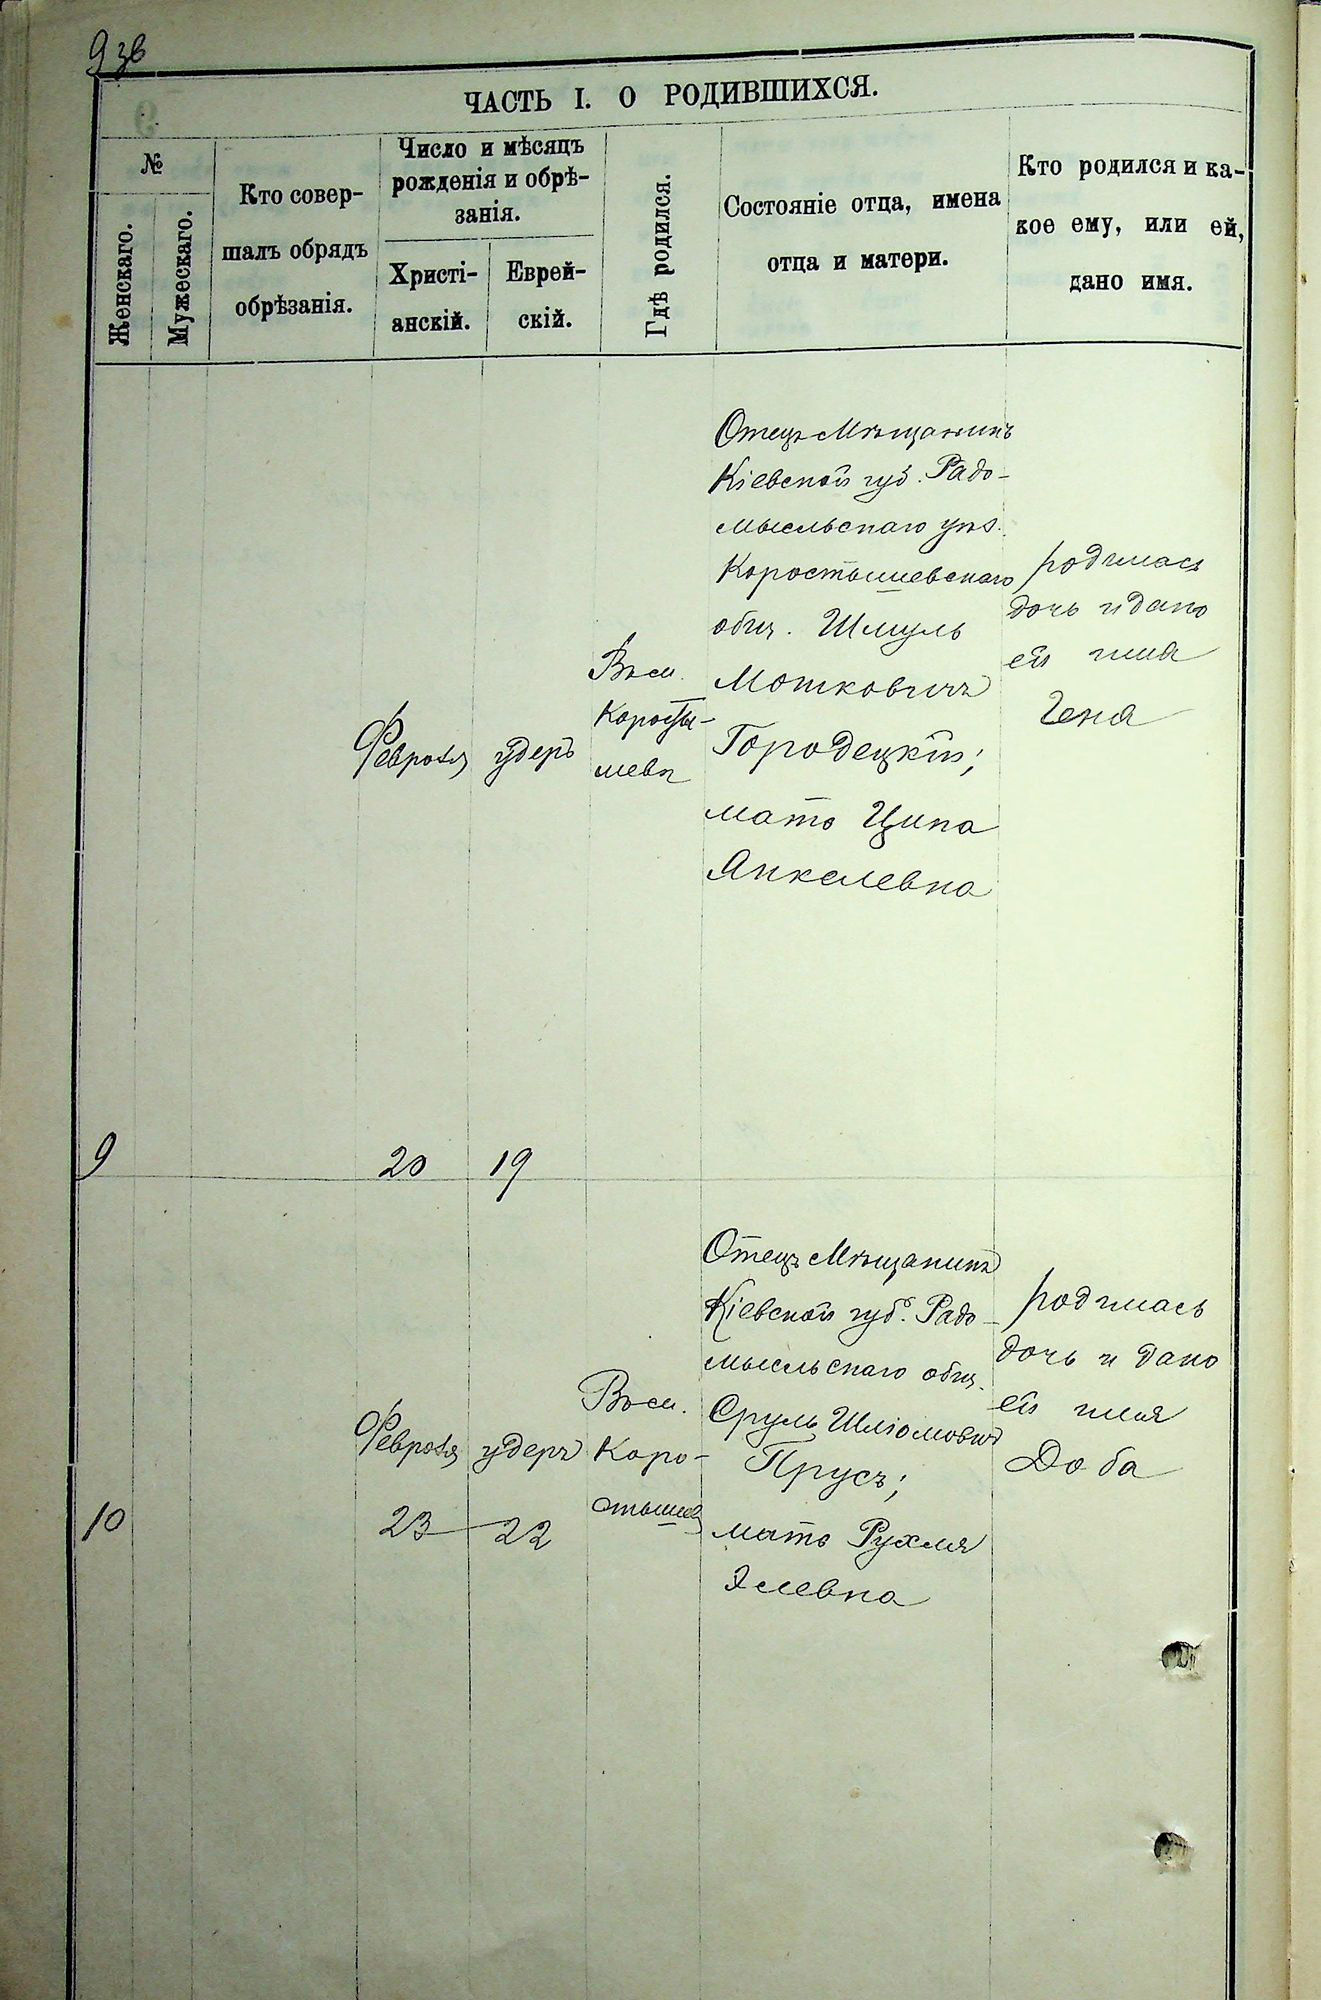 9 зв
ЧАСТЬ I. О РОДИВШИХСЯ.
№
Женскаго.
Мужескаго.
Кто совер-
шалъ обрядъ
обрѣзанія.
Число и мѣсяцъ
рожденія и обрѣ-
занія.
Христі-
анскій.
Еврей-
скій.
Гдѣ родился.
Состояніе отца, имена
отца и матери.
Кто родился и ка-
кое ему, или ей,
дано имя.
9
Февраля
20
удеръ
19
Въ м.
Коросты-
шевѣ
Отецъ Мѣщанинъ
Кіевской губ. Радо-
мысльскаго уѣз.
Коростышевскаго
общ. Шмуль
Мошковичъ
Городецкій;
мать Ципа
Янкелевна
родилась
дочь и дано
ей имя
Геня
10
Февраля
23
удеръ
22
Въ м.
Коро-
стышев
Отецъ Мѣщанинъ
Кіевской губ. Радо-
мысльскаго общ.
Сруль Шліомовичъ
Прусъ;
мать Рухля
Элевна
родилась
дочь и дано
ей имя
Доба